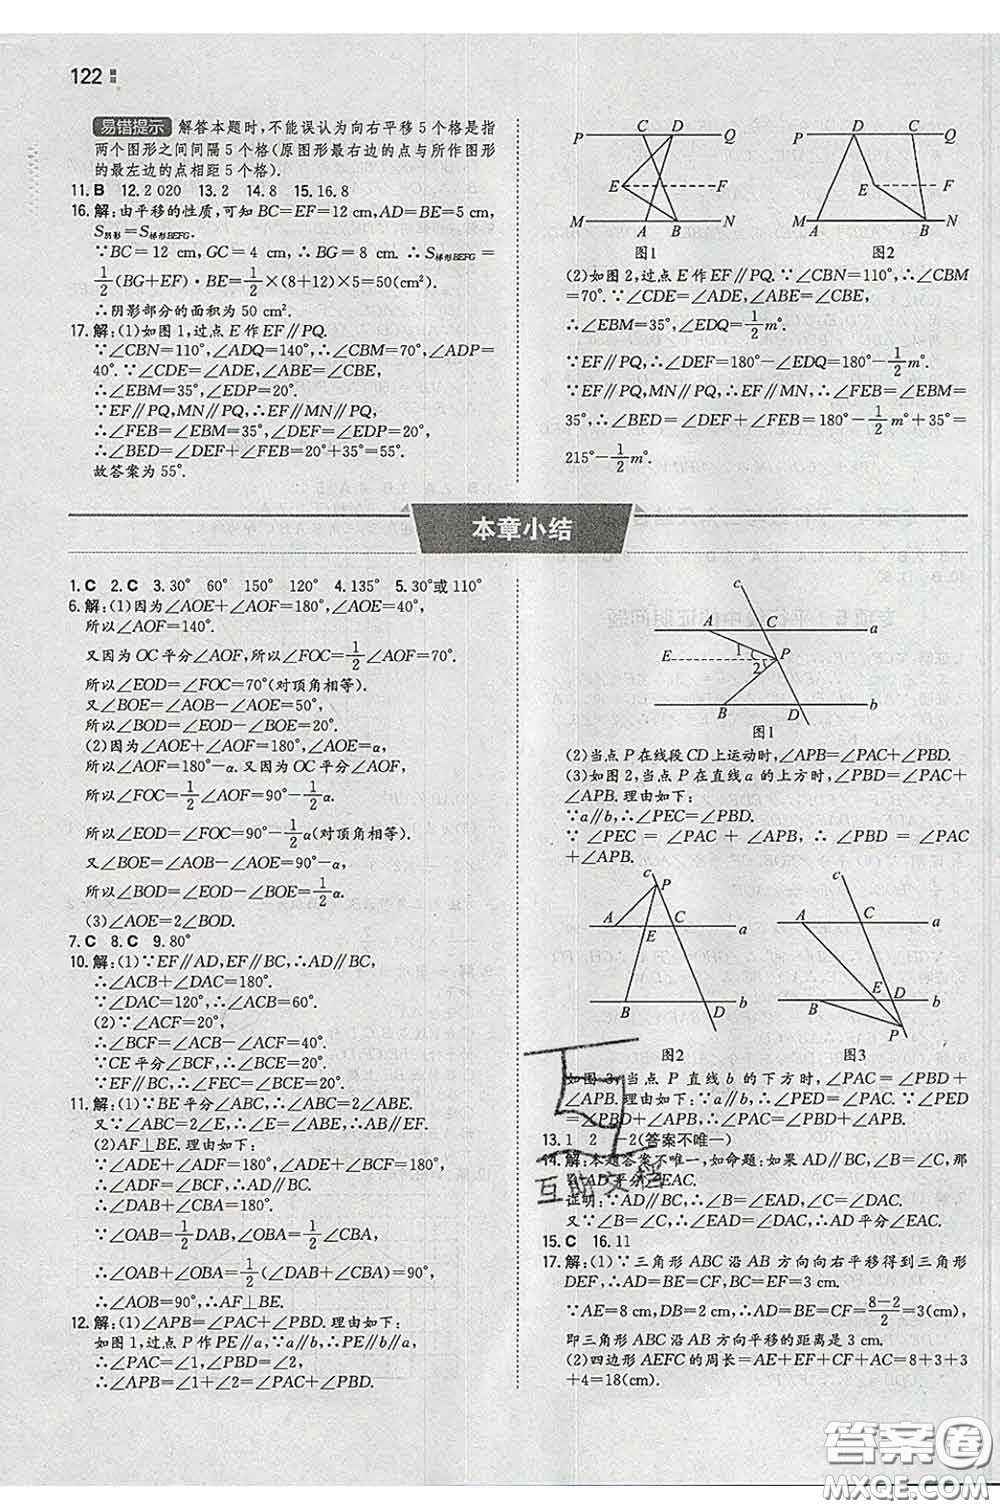 122
易错提示 解答本题时,不能误认为向右平移5个格是指
两个图形之间间隔5个格(原图形最右边的点与所作图形
的最左边的点相距5个格).
11.B 12.2 020 13.2 14.8 15.16.8
16.解:由平移的性质,可知BC=EF=12 cm,AD=BE=5 cm,
S阴影=S梯形BEFG.
∵BC=12 cm,GC=4 cm,∴BG=8 cm.∴S梯形BEFG=
1/2(BG+EF)·BE=1/2×(8+12)×5=50(cm²).
∴阴影部分的面积为50 cm².
17.解:(1)如图1,过点E作EF∥PQ.
∵∠CBN=110°,∠ADQ=140°,∴∠CBM=70°,∠ADP=
40°.∵∠CDE=∠ADE,∠ABE=∠CBE,
∴∠EBM=35°,∠EDP=20°.
∵EF∥PQ,MN∥PQ,∴EF∥MN,
∴∠FEB=∠EBM=35°,∠DEF=∠EDP=20°,
∴∠BED=∠DEF+∠FEB=20°+35°=55°.
故答案为55°.
P C D Q
E F
M A B N
图1
P D C Q
E F
M A B N
图2
(2)如图2,过点E作EF∥PQ.∵∠CBN=110°,∴∠CBM
=70°.∵∠CDE=∠ADE,∠ABE=∠CBE,
∴∠EBM=35°,∠EDQ=1/2m°.
∵EF∥PQ,∴∠DEF=180°-∠EDQ=180°-1/2m°.
∵EF∥PQ,MN∥PQ,∴EF∥MN,∴∠FEB=∠EBM=
35°,∴∠BED=∠DEF+∠FEB=180°-1/2m°+35°=
215°-1/2m°.
本章小结
1.C 2.C 3.30° 60° 150° 120° 4.135° 5.30°或110°
6.解:(1)因为∠AOE+∠AOF=180°,∠AOE=40°,
所以∠AOF=140°.
又因为OC平分∠AOF,所以∠FOC=1/2∠AOF=70°.
所以∠EOD=∠FOC=70°(对顶角相等).
又∠BOE=∠AOB-∠AOE=50°,
所以∠BOD=∠EOD-∠BOE=20°.
(2)因为∠AOE+∠AOF=180°,∠AOE=α,
所以∠AOF=180°-α.又因为OC平分∠AOF,
所以∠FOC=1/2∠AOF=90°-1/2α.
所以∠EOD=∠FOC=90°-1/2α(对顶角相等).
又∠BOE=∠AOB-∠AOE=90°-α,
所以∠BOD=∠EOD-∠BOE=1/2α.
(3)∠AOE=2∠BOD.
7.C 8.C 9.80°
10.解:(1)∵EF∥AD,EF∥BC,∴AD∥BC,
∴∠ACB+∠DAC=180°.
∵∠DAC=120°,∴∠ACB=60°.
(2)∵∠ACF=20°,
∴∠BCF=∠ACB-∠ACF=40°.
∵CE平分∠BCF,∴∠BCE=20°.
∵EF∥BC,∴∠FEC=∠BCE=20°.
11.解:(1)∵BE平分∠ABC,∴∠ABC=2∠ABE.
又∵∠ABC=2∠E,∴∠ABE=∠E,∴AB∥EF.
(2)AF⊥BE.理由如下:
∵∠ADE+∠ADF=180°,∠ADE+∠BCF=180°,
∴∠ADF=∠BCF,∴AD∥BC,
∴∠DAB+∠CBA=180°.
∵∠OAB=1/2∠DAB,∠OBA=1/2∠CBA,
∴∠OAB+∠OBA=1/2(∠DAB+∠CBA)=90°,
∴∠AOB=90°,∴AF⊥BE.
12.解:(1)∠APB=∠PAC+∠PBD.理由如下:
如图1,过点P作PE∥a,∵a∥b,∴PE∥b∥a,
∴∠PAC=∠1,∠PBD=∠2,
∴∠APB=∠1+∠2=∠PAC+∠PBD.
c
A C a
1
E P
2
B D b
图1
(2)当点P在线段CD上运动时,∠APB=∠PAC+∠PBD.
(3)如图2,当点P在直线a的上方时,∠PBD=∠PAC+
∠APB.理由如下:
∵a∥b,∴∠PEC=∠PBD.
∵∠PEC=∠PAC+∠APB,∴∠PBD=∠PAC
+∠APB.
c P
A E C a
B D b
图2
c
A C a
E D b
B P
图3
如图3,当点P直线b的下方时,∠PAC=∠PBD+
∠APB.理由如下:∵a∥b,∴∠PED=∠PAC.∵∠PED
=∠PBD+∠APB,∴∠PAC=∠PBD+∠APB.
13.1 2 -2(答案不唯一)
14.解:本题答案不唯一,如命题:如果AD∥BC,∠B=∠C,那
么AD平分∠EAC.
证明:∵AD∥BC,∴∠B=∠EAD,∠C=∠DAC.
又∵∠B=∠C,∴∠EAD=∠DAC,∴AD平分∠EAC.
15.C 16.11
17.解:(1)∵三角形ABC沿AB方向向右平移得到三角形
DEF,∴AD=BE=CF,BC=EF=3 cm.
∵AE=8 cm,DB=2 cm,∴AD=BE=CF=(8-2)/2=3(cm),
即三角形ABC沿AB方向平移的距离是3 cm.
(2)四边形AEFC的周长=AE+EF+CF+AC=8+3+3
+4=18(cm).
答案卷
MXQE.COM